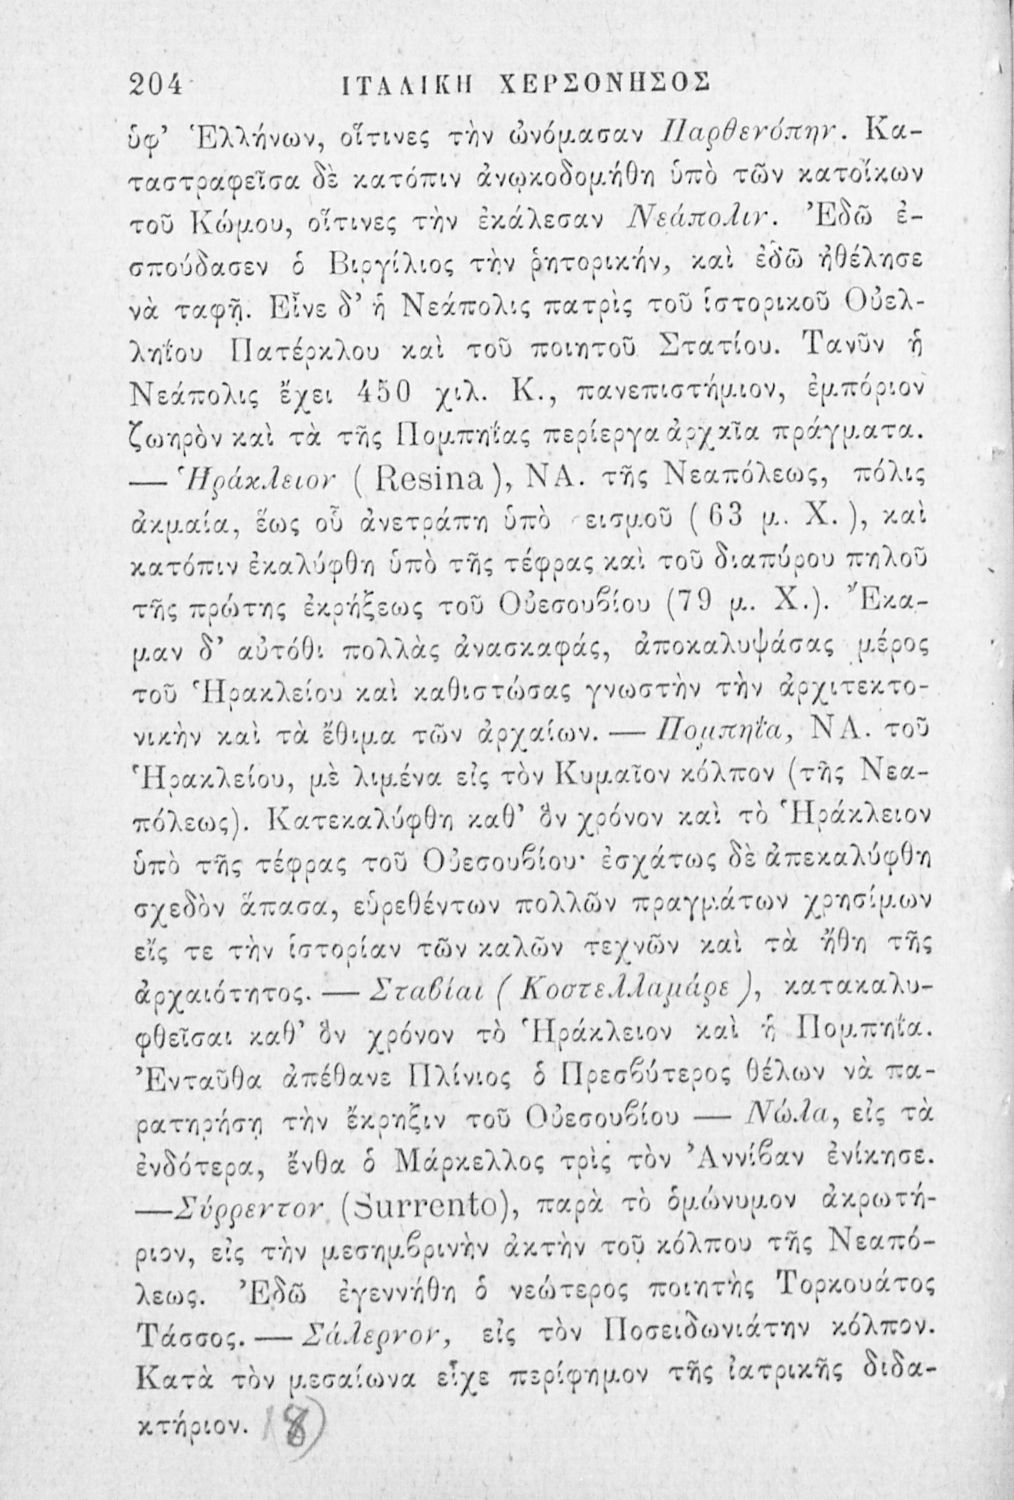 204 ΙΤΑΛΙΚΗ ΧΕΡΣΟΝΗΣΟΣ
ὑφ’ Ἑλλήνων, οἵτινες τὴν ὠνόμασαν Παρθενόπην. Κα-
ταστραφεῖσα δὲ κατόπιν ἀνῳκοδομήθη ὑπὸ τῶν κατοίκων
τοῦ Κώμου, οἵτινες τὴν ἐκάλεσαν Νεάπολιν. Ἐδῶ ἐ-
σπούδασεν ὁ Βιργίλιος τὴν ῥητορικήν, καὶ ἐδῶ ἠθέλησε
νὰ ταφῇ. Εἶνε δ’ ἡ Νεάπολις πατρὶς τοῦ ἱστορικοῦ Οὐελ-
ληΐου Πατέρκλου καὶ τοῦ ποιητοῦ Στατίου. Τανῦν ἡ
Νεάπολις ἔχει 450 χιλ. Κ., πανεπιστήμιον, ἐμπόριον
ζωηρὸν καὶ τὰ τῆς Πομπηΐας περίεργα ἀρχαῖα πράγματα.
— Ἡράκλειον (Resina), ΝΑ. τῆς Νεαπόλεως, πόλις
ἀκμαία, ἕως οὗ ἀνετράπη ὑπὸ εισμοῦ (63 μ. Χ.), καὶ
κατόπιν ἐκαλύφθη ὑπὸ τῆς τέφρας καὶ τοῦ διαπύρου πηλοῦ
τῆς πρώτης ἐκρήξεως τοῦ Οὐεσουβίου (79 μ. Χ.). Ἔκα-
μαν δ’ αὐτόθι πολλὰς ἀνασκαφάς, ἀποκαλυψάσας μέρος
τοῦ Ἡρακλείου καὶ καθιστώσας γνωστὴν τὴν ἀρχιτεκτο-
νικὴν καὶ τὰ ἔθιμα τῶν ἀρχαίων. — Πομπηΐα, ΝΑ. τοῦ
Ἡρακλείου, μὲ λιμένα εἰς τὸν Κυμαῖον κόλπον (τῆς Νεα-
πόλεως). Κατεκαλύφθη καθ’ ὃν χρόνον καὶ τὸ Ἡράκλειον
ὑπὸ τῆς τέφρας τοῦ Οὐεσουβίου· ἐσχάτως δὲ ἀπεκαλύφθη
σχεδὸν ἅπασα, εὑρεθέντων πολλῶν πραγμάτων χρησίμων
εἴς τε τὴν ἱστορίαν τῶν καλῶν τεχνῶν καὶ τὰ ἤθη τῆς
ἀρχαιότητος. — Σταβίαι (Καστελλαμάρε), κατακαλυ-
φθεῖσαι καθ’ ὃν χρόνον τὸ Ἡράκλειον καὶ ἡ Πομπηΐα.
Ἐνταῦθα ἀπέθανε Πλίνιος ὁ Πρεσβύτερος θέλων νὰ πα-
ρατηρήσῃ τὴν ἔκρηξιν τοῦ Οὐεσουβίου — Νώλα, εἰς τὰ
ἐνδότερα, ἔνθα ὁ Μάρκελλος τρὶς τὸν Ἀννίβαν ἐνίκησε.
—Σύρρεντον (Surrento), παρὰ τὸ ὁμώνυμον ἀκρωτή-
ριον, εἰς τὴν μεσημβρινὴν ἀκτὴν τοῦ κόλπου τῆς Νεαπό-
λεως. Ἐδῶ ἐγεννήθη ὁ νεώτερος ποιητὴς Τορκουάτος
Τάσσος. — Σάλερνον, εἰς τὸν Ποσειδωνιάτην κόλπον.
Κατὰ τὸν μεσαίωνα εἶχε περίφημον τῆς ἰατρικῆς διδα-
κτήριον.